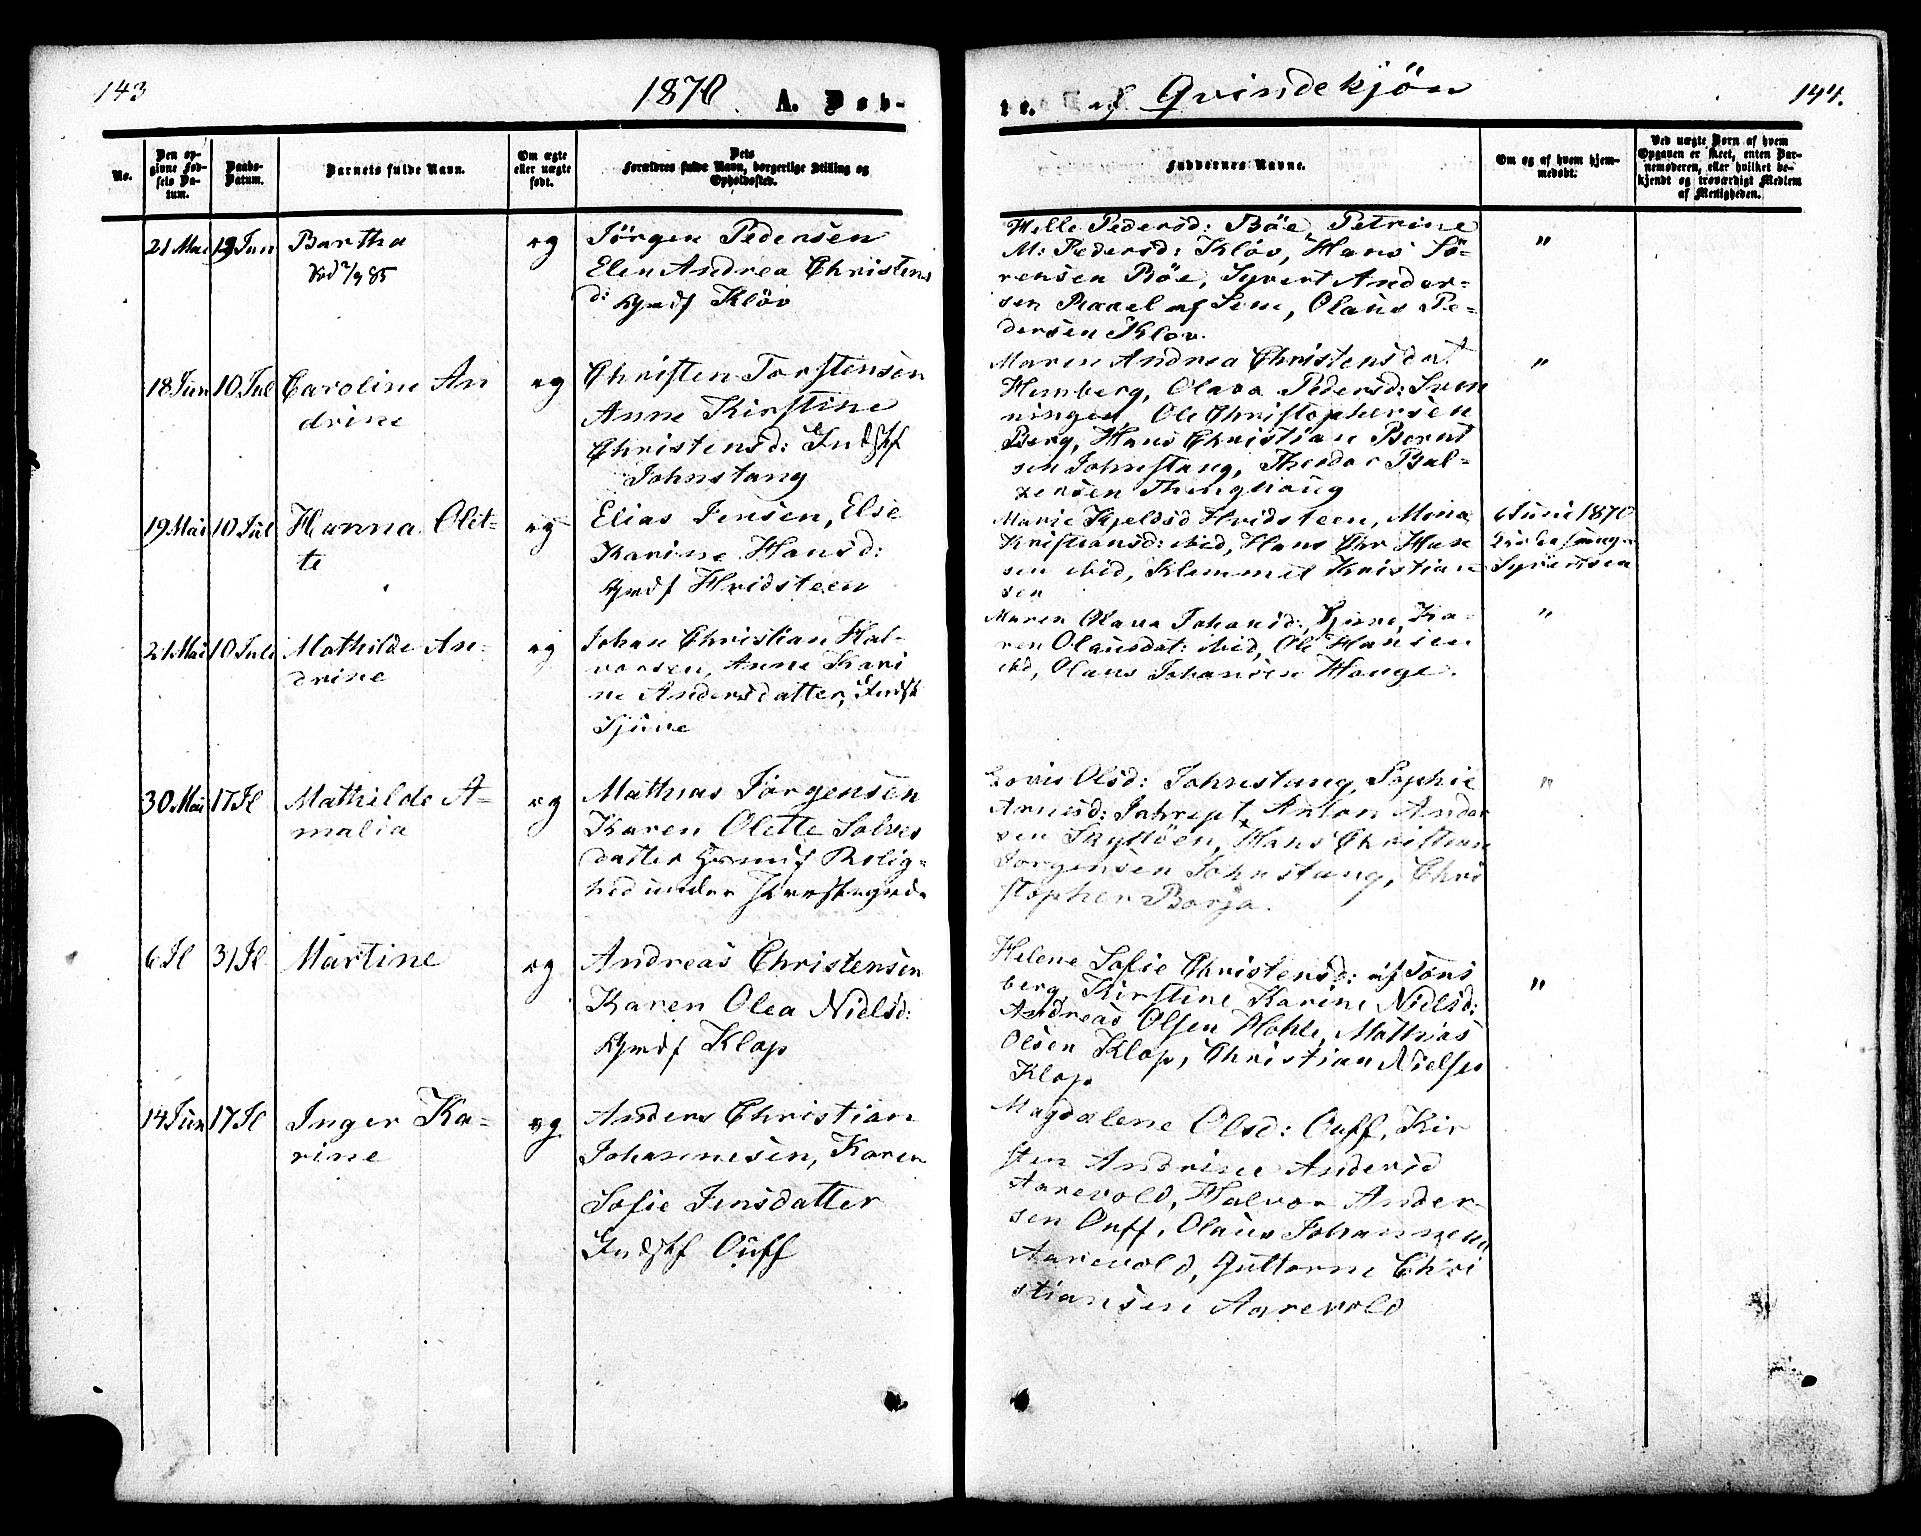 143
1870.
A. Døb-
te. af Qvindekjön
144.
No.
Den op-
givne Fød-
sels Da-
tum.
Daabs-
Datum.
Barnets fulde Navn.
Om ægte
eller uægte
født.
Dets
Forældres fulde Navn, borgerlige Stilling og
Opholdssted.
Faddernes Navne.
Om og af hvem hjem-
medøbt.
Ved uægte Børn af hvem
Opgaven er skeet, enten Bar-
nemoderen, eller hvilket be-
kjendt og troværdigt Medlem
af Menigheden.
21 Mai
Jun
Bertha
85
eg
Jörgen Pedersen
Elen Andrea Christens
d: Gmdf Klöv
Helle Pedersd: Böe, Petrine
M: Pedersd: Klöv, Hans Sö-
rensen Böe, Syvert Ander-
sen af Sem, Olaus Pe-
dersen Klöv.
"
18 Jun
10 Jul
Caroline An
drine
eg
Christen Torstensen
Anne Kirstine
Christensd: Indstf
Johnstang
Maren Andrea Christensdat
Hemberg, Olava Pedersd:
Ole Christophersen
Berg, Hans Christian Bernt
sen Johnstang, Theodor Bal-
zersen
"
19 Mai
10 Jul
Hanna Olet-
te
eg
Elias Jensen, Else
Karine Hansd:
Gmdf Hvidsteen
Marie Kjeldsd Hvidsteen, Mina
Kristiansd: ibid, Hans Chr Han
sen ibid, Klemmet Kristian
sen
6 Juni 1870
Syvertsen
21 Mai
10 Juli
Mathilde An-
drine
eg
Johan Christian Hal-
vorsen, Anne Kari
ne Andersdatter, Indst
Tjüne
Maren Olava Johansd: Tjüne, Ka-
ren Olausdat: ibid, Ole Hansen
ibid, Olaus Johansen Hauge.
"
30 Mai
17 Jl
Mathilde A-
malia
eg
Mathias Jörgensen
Karen Olette Solves
datter Gmmf Rolig-
hed under
Olsd: Johnstang, Sophie
Arnesd: Anton Ander
sen Hans Christian
Jorgensen Johnstang, Chri
stopher Borja.
"
6 Jl
31 Jl
Martine
eg
Andreas Christensen
Karen Olea Nielsd:
Gmdf Klop
Helene Sofie Christensd: af Töns
berg, Kirstine Karine Nielsd:
Andreas Olsen Mathias
Olsen Klop, Christian Nielsen
Klop
"
14 Jun
17 Jl
Inger Ka-
rine
eg
Anders Christian
Johannesen, Karen
Sofie Jensdatter
Indstf Ouff
Magdalene Olsd: Ouff, Kir
sten Andrine Andersd
Aarevold, Halvor Ander-
sen Ouff, Olaus Johannesen
Aarevold, Guttorm Chri
stiansen Aarevold